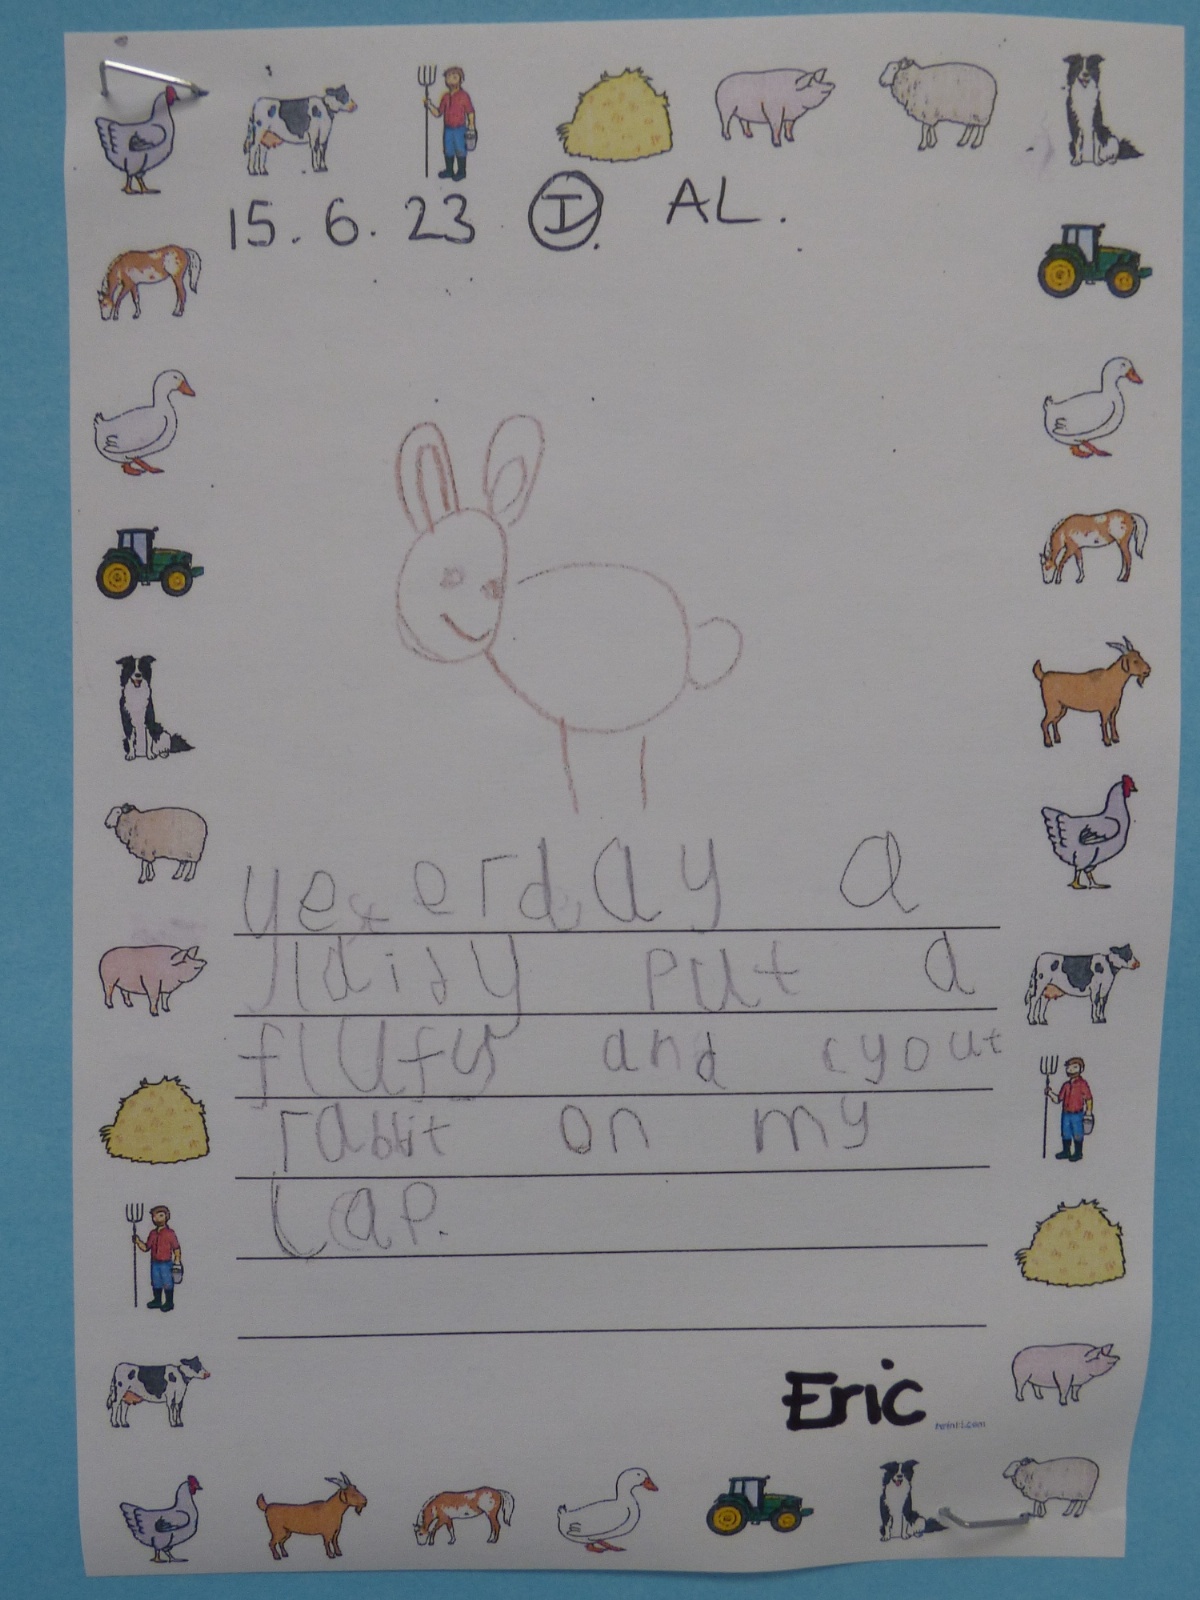 15.6.23 I AL.
yexerday a
naidy put a
flufy and cyout
rabbit on my
Lap.
Eric
twinkl.com